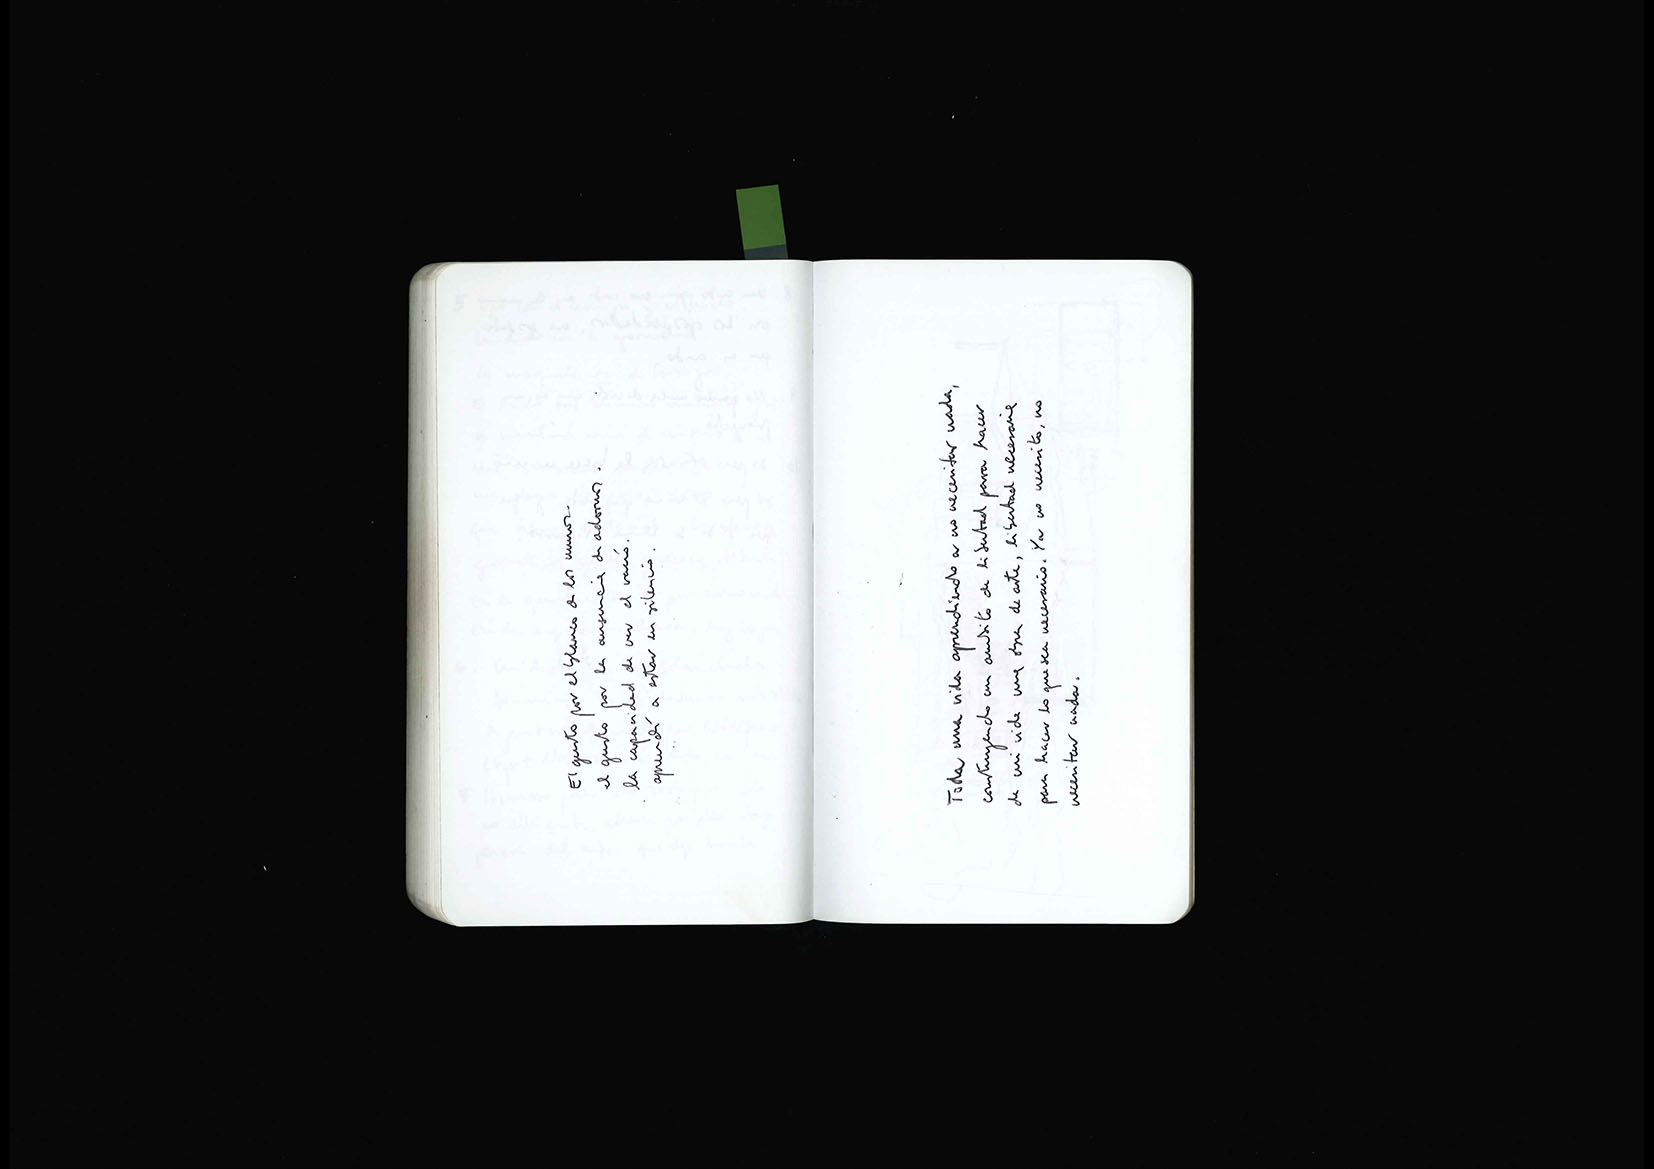 El gusto por el blanco de los muros.
el gusto por la ausencia de adornos.
la capacidad de ver el vacío.
aprendí a estar en silencio.
Toda una vida aprendiendo a no necesitar nada,
construyendo un ámbito de libertad para hacer
de mi vida una obra de arte, libertad necesaria
para hacer lo que sea necesario. Ya no necesito, no
necesitar nada.